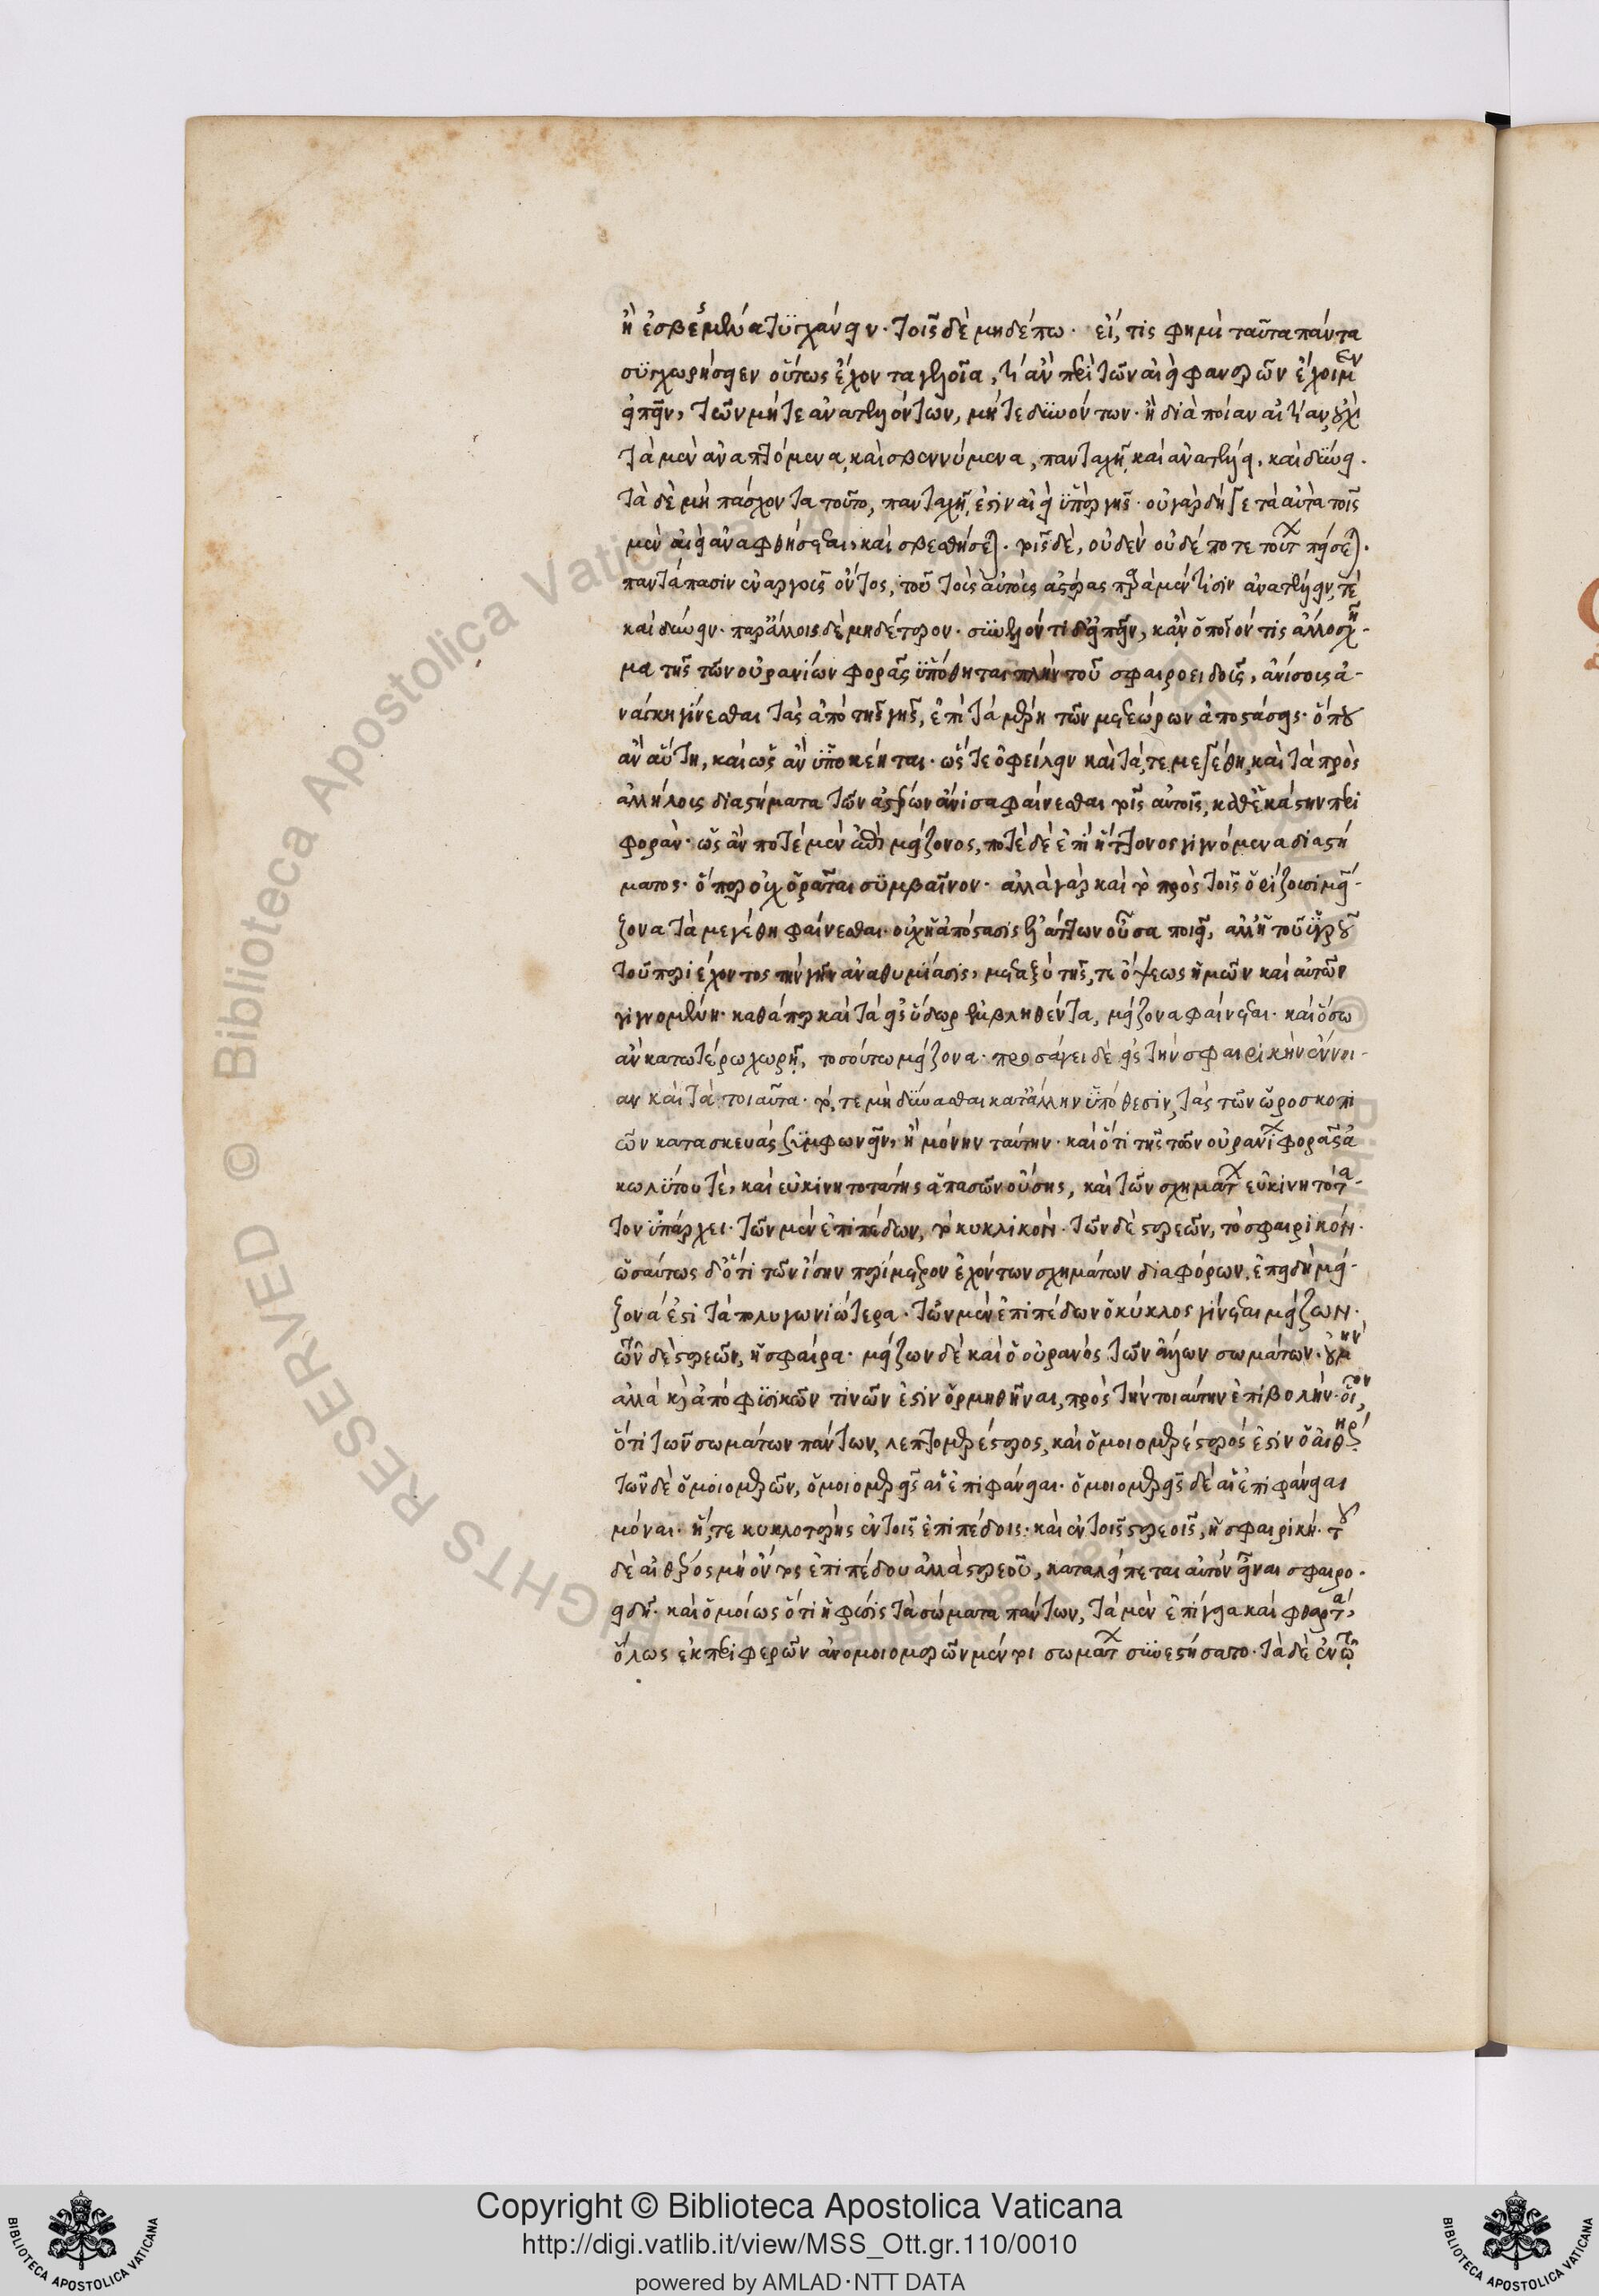 ἢ ἐσβεσμένα τυγχάνειν· τοῖς δὲ μηδέπω· εἰ, τις φημὶ ταῦτα πάντα
συγχωρήσειεν οὕτως ἔχοντα γενοῖα, τί ἂν περὶ τῶν ἀεὶ φανερῶν ἔχοιμεν
εἰπεῖν, τῶν μήτε ἀνατελλόντων, μήτε δυνόντων· ἢ διὰ ποίαν αἰτίαν, οὐχὶ
τὰ μὲν ἀναπτόμενα, καὶ σβεννύμενα, πανταχῆ καὶ ἀνατέλλει, καὶ δύνει.
τὰ δὲ μὴ πάσχοντα τοῦτο, πανταχῆ, ἐστὶν ἀεὶ ὑπὲρ γῆς· οὐ γὰρ δήπου γε τὰ αὐτὰ τοῖς
μὲν ἀεὶ ἀναφθήσεται, καὶ σβεσθήσεται. τοῖς δὲ, οὐδὲν οὐδέποτε τούτων πείσεται.
παντάπασιν ἐναργοῦς ὄντος, τοῦ τοὺς αὐτοὺς ἀστέρας παρὰ μέν τισιν ἀνατέλλειν, τὲ
καὶ δύνειν· παρ' ἄλλοις δὲ μηδέτερον· συνελόντι δ' εἰπεῖν, κἂν ὁποῖόν τις ἄλλο σχῆ-
μα τῆς τῶν οὐρανίων φορᾶς ὑπόθηται πλὴν τοῦ σφαιροειδοῦς, ἀνίσους ἀ-
νάγκη γίνεσθαι τὰς ἀπὸ τῆς γῆς, ἐπὶ τὰ μέρη τῶν μετεώρων ἀποστάσεις· ὅπου
ἂν αὕτη, καὶ ὡς ἂν ὑποκέηται· ὥστε ὀφείλειν καὶ τά, τε μεγέθη, καὶ τὰ πρὸς
ἀλλήλους διαστήματα τῶν ἀστέρων ἄνισα φαίνεσθαι τοῖς αὐτοῖς, καθ' ἑκάστην περι
φοράν· ὡς ἄν ποτὲ μὲν ἀπὸ μείζονος, ποτὲ δὲ ἐπὶ ἥττονος γιγνόμενα διαστή
ματος· ὅπερ οὐχ ὁρᾶται συμβαῖνον· ἀλλὰ γὰρ καὶ τὸ πρὸς τοῖς ὁρίζουσι μεί-
ζονα τὰ μεγέθη φαίνεσθαι· οὐχ ἡ ἀπόστασις ἐλάττων οὖσα ποιεῖ, ἀλλ' ἡ τοῦ ὑγροῦ
τοῦ περιέχοντος τὴν γῆν ἀναθυμίασις, μεταξὺ τῆς, τε ὄψεως ἡμῶν καὶ αὐτῶν
γιγνομένη· καθάπερ καὶ τὰ εἰς ὕδωρ ἐμβληθέντα, μείζονα φαίνεται· καὶ ὅσω
ἂν κατωτέρω χωρῆ, τοσούτω μείζονα· προσάγει δὲ εἰς τὴν σφαιρικὴν ἔννοι-
αν καὶ τὰ τοιαῦτα· τό, τε μὴ δύνασθαι κατ' ἄλλην ὑπόθεσιν, τὰς τῶν ὡροσκοπι
ῶν κατασκευὰς συμφωνεῖν, ἢ μόνην ταύτην· καὶ ὅτι τῆς τῶν οὐρανίων φορᾶς ἀ
κωλύτου τὲ, καὶ εὐκινητοτάτης ἁπασῶν οὔσης, καὶ τῶν σχημάτων εὐκινητότα-
τον ὑπάρχει· τῶν μὲν ἐπιπέδων, τὸ κυκλικόν· τῶν δὲ στερεῶν, τὸ σφαιρικόν.
ὡσαύτως δ' ὅτι τῶν ἴσην περίμετρον ἐχόντων σχημάτων διαφόρων, ἐπειδὴ μεί-
ζονά ἐστι τὰ πολυγωνιώτερα· τῶν μὲν ἐπιπέδων ὁ κύκλος γίνεται μείζων.
τῶν δὲ στερεῶν, ἡ σφαίρα· μείζων δὲ καὶ ὁ οὐρανὸς τῶν ἄλλων σωμάτων· οὐ μὴν
ἀλλὰ καὶ ἀπὸ φυσικῶν τινῶν ἐστὶν ὁρμηθῆναι, πρὸς τὴν τοιαύτην ἐπιβολήν· οἷον,
ὅτι τῶν σωμάτων πάντων, λεπτομερέστερος, καὶ ὁμοιομερέστερός ἐστὶν ὁ αἰθήρ.
τῶν δὲ ὁμοιομερῶν, ὁμοιομερεῖς αἱ ἐπιφάνειαι· ὁμοιομερεῖς δὲ αἱ ἐπιφάνειαι
μόναι· ἥ, τε κυκλοτερὴς ἐν τοῖς ἐπιπέδοις· καὶ ἐν τοῖς στερεοῖς, ἡ σφαιρική· τοῦ
δὲ αἰθέρος μὴ ὄντος ἐπιπέδου ἀλλὰ στερεοῦ, καταλείπεται αὐτὸν εἶναι σφαιρο-
ειδῆ· καὶ ὁμοίως ὅτι ἡ φύσις τὰ σώματα πάντων, τὰ μὲν ἐπίγεια καὶ φθαρτά,
ὅλως ἐκ περιφερῶν ἀνομοιομερῶν μέν τοι σωμάτων συνεστήσατο· τὰ δὲ ἐν τῷ
Copyright © Biblioteca Apostolica Vaticana
http://digi.vatlib.it/view/MSS_Ott.gr.110/0010
powered by AMLAD·NTT DATA